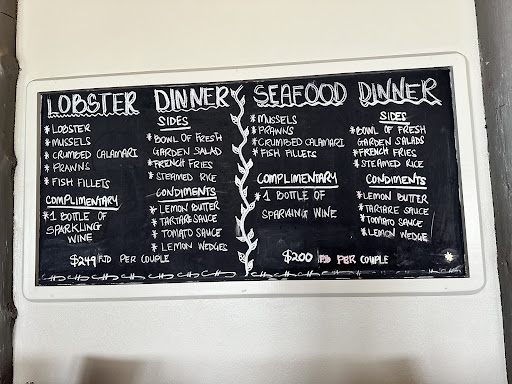 LOBSTER DINNER
* LOBSTER
* MUSSELS
* CRUMBED CALAMARI
* PRAWNS
* FISH FILLETS
COMPLIMENTARY
* 1 BOTTLE OF
SPARKLING
WINE
SIDES
* BOWL OF FRESH
GARDEN SALAD
* FRENCH FRIES
* STEAMED RICE
CONDIMENTS
* LEMON BUTTER
* TARTARE SAUCE
* TOMATO SAUCE
* LEMON WEDGES
$249 FJD PER COUPLE
SEAFOOD DINNER
* MUSSELS
* PRAWNS
* CRUMBED CALAMARI
* FISH FILLETS
COMPLIMENTARY
* 1 BOTTLE OF
SPARKLING WINE
SIDES
* BOWL OF FRESH
GARDEN SALADS
* FRENCH FRIES
* STEAMED RICE
CONDIMENTS
* LEMON BUTTER
* TARTARE SAUCE
* TOMATO SAUCE
* LEMON WEDGE
$200 FJD PER COUPLE